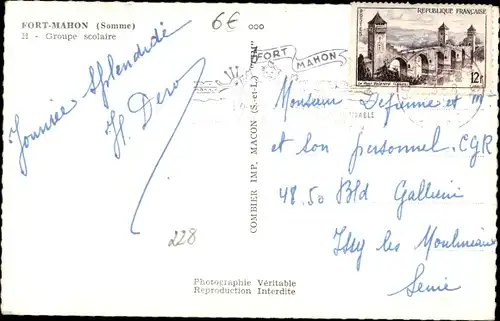 FORT-MAHON (Somme)
H - Groupe scolaire
6€
Journée splendide
H. Dero
228
COMBIER IMP. MACON (S.-et-L.) "CIM"
FORT MAHON
REPUBLIQUE FRANÇAISE
12F
Monsieur Defienne et
et son personnel CGR
48.50 Bld Gallieni
Issy les Moulineaux
Seine
Photographie Véritable
Reproduction Interdite